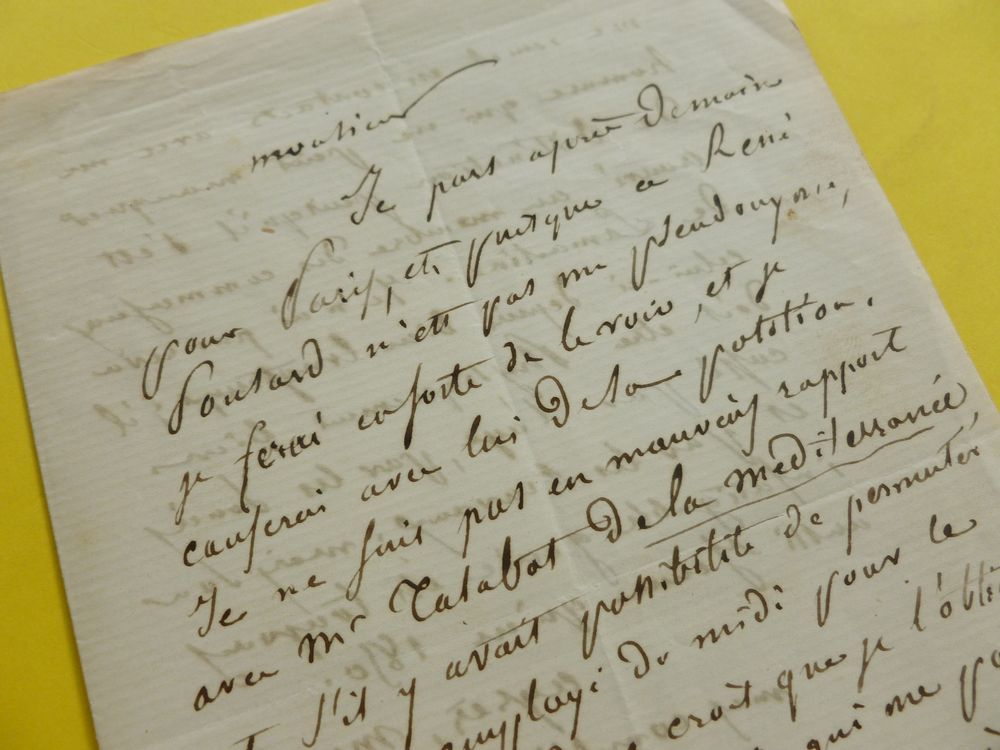 monsieur
Je pars après demain
pour Paris, et puisque a René
Ponsard n'est pas un pseudonyme,
je ferai ensorte de le voir, et je
causerai avec lui de sa position.
Je ne suis pas en mauvais rapport
avec Mr Talabot de la mediterranée,
s'il y avait possibilité de permuter
employé de midi pour le
croit que je l'obti
qui me